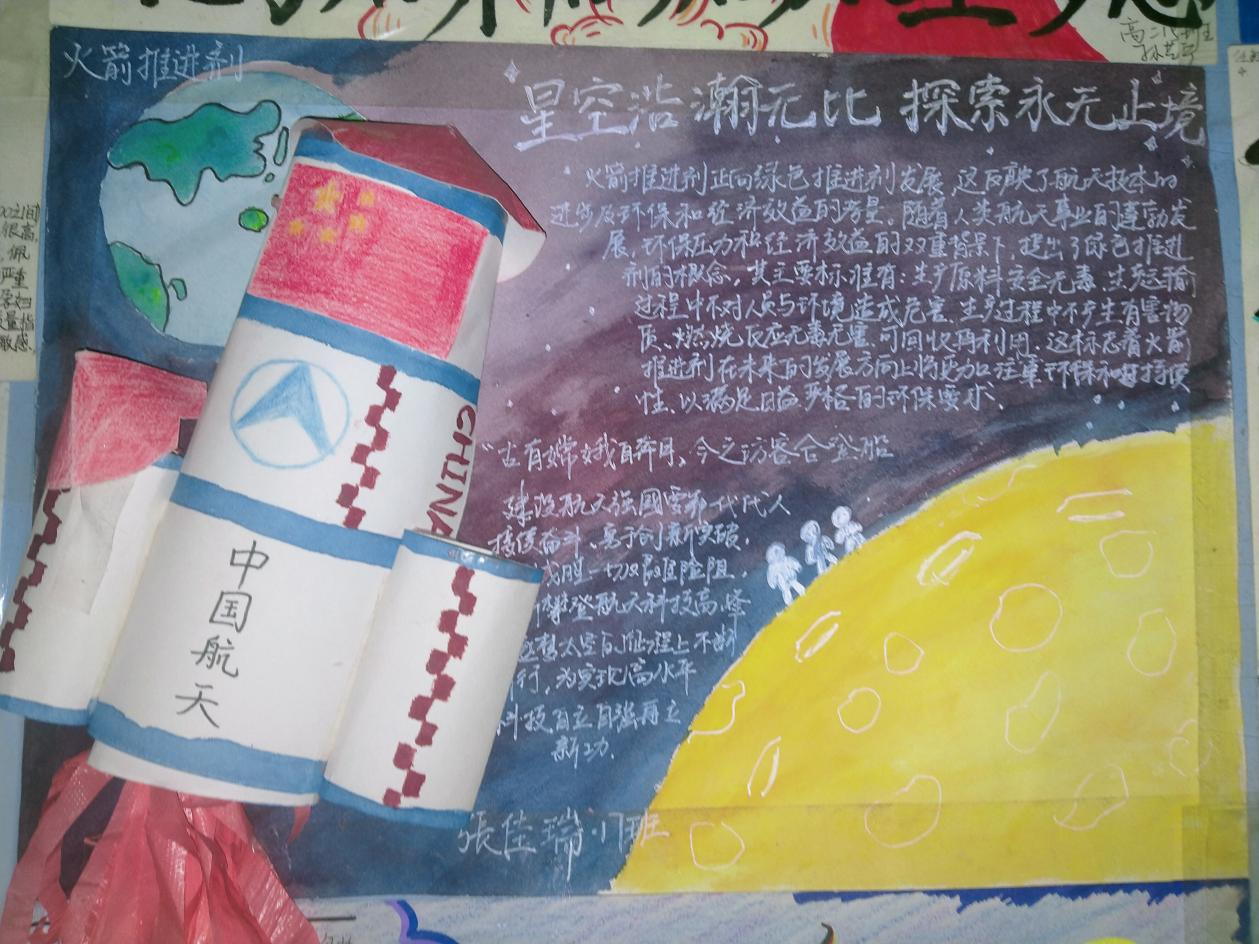 火箭推进剂
星空浩瀚无比 探索永无止境
火箭推进剂正向绿色推进剂发展,这反映了航天技术的
进步及环保和经济效益的考量,随着人类航天事业的蓬勃发
展,环保压力和经济效益的双重背景下,提出了绿色推进
剂的概念,其主要标准有:生产原料安全无毒,生产运输
过程中不对人员与环境造成危害,生产过程中不产生有害物
质、燃烧反应无毒无害,可回收再利用.这标志着火箭
推进剂在未来的发展方向上将更加注重环保和可持续
性,以满足日益严格的环保要求.
"古有嫦娥自奔月,今之访客合登船
建设航天强國要靠一代代人
接续奋斗、勇于创新突破,
战胜一切艰难险阻
攀登航天科技高峰
太空的征程上不断
前行,为实现高水平
科技自立自强再立
新功.
張佳瑞
班
中国航天
CHINA
高二
班